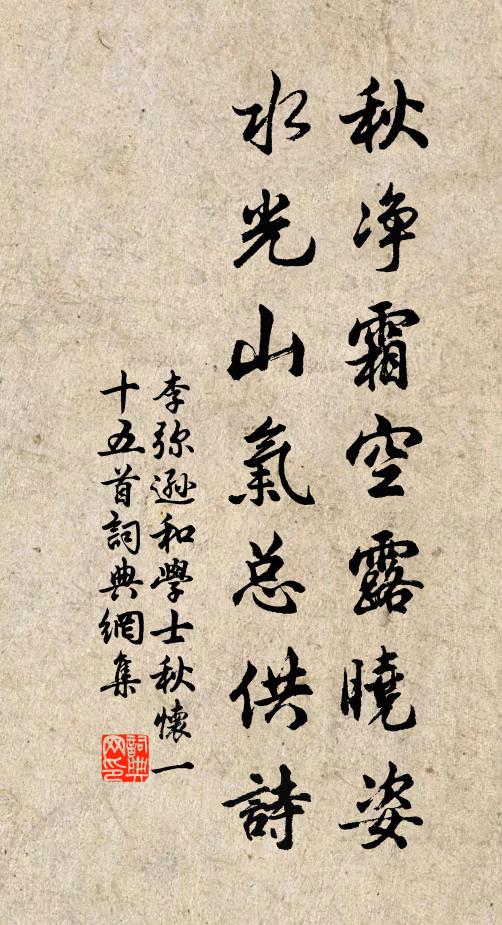 秋净霜空露曉姿
水光山氣总供詩
李弥遜和學士秋懷一
十五首詞典網集
詞典
网印